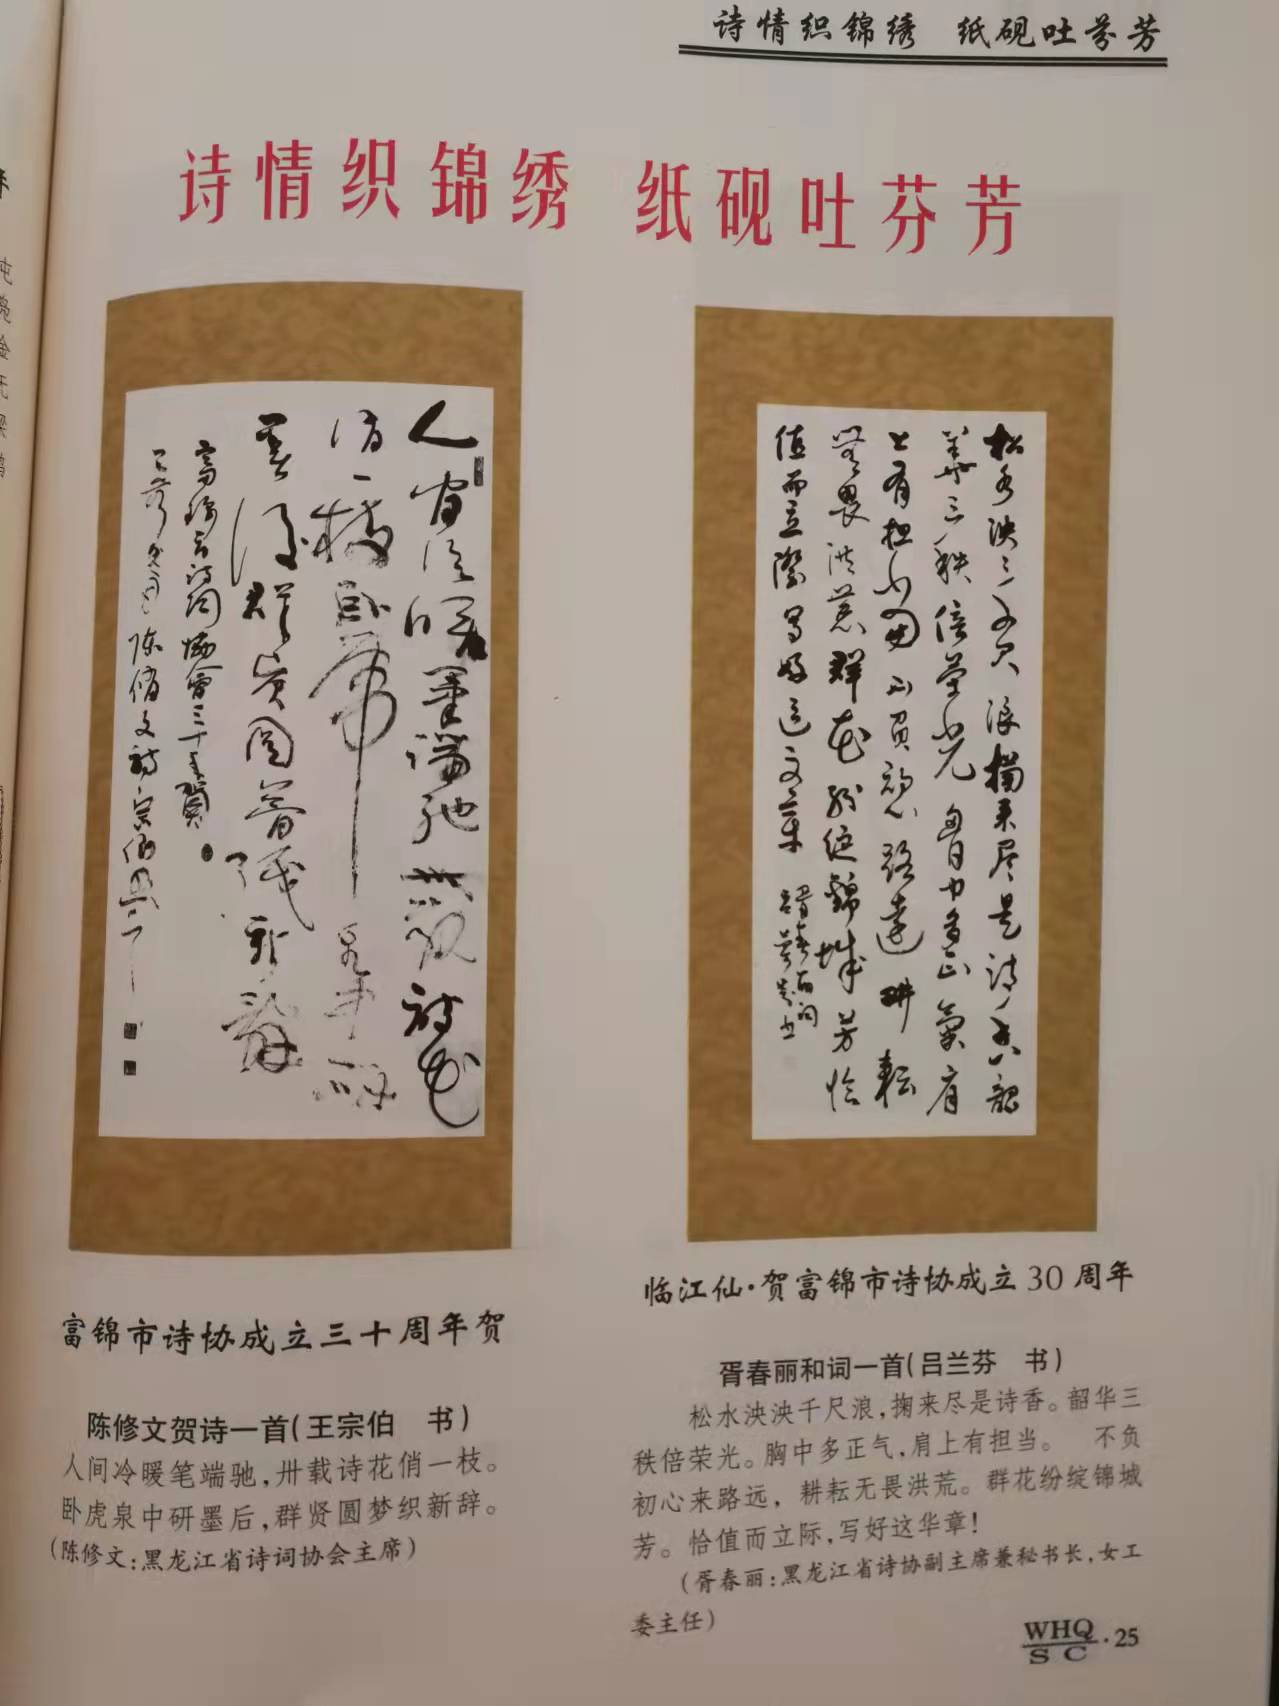 诗情织锦绣 纸砚吐芬芳
诗情织锦绣 纸砚吐芬芳
人间冷暖笔端驰卅载诗花
俏一枝卧虎泉中研
墨后群贤圆梦织新辞
富锦市诗词协会三十年贺
陈修文诗宗伯书
松水泱泱千尺浪掬来尽是诗香韶
华三秩倍荣光胸中多正气肩
上有担当不负初心路远耕耘
无畏洪荒群花纷绽锦城芳恰
值而立际写好这文章
胥春丽词
兰芬书
富锦市诗协成立三十周年贺
陈修文贺诗一首(王宗伯 书)
人间冷暖笔端驰,卅载诗花俏一枝。
卧虎泉中研墨后,群贤圆梦织新辞。
(陈修文:黑龙江省诗词协会主席)
临江仙·贺富锦市诗协成立30周年
胥春丽和词一首(吕兰芬 书)
松水泱泱千尺浪,掬来尽是诗香。韶华三
秩倍荣光。胸中多正气,肩上有担当。 不负
初心来路远,耕耘无畏洪荒。群花纷绽锦城
芳。恰值而立际,写好这华章!
(胥春丽:黑龙江省诗协副主席兼秘书长,女工
委主任)
WHQ
SC ·25